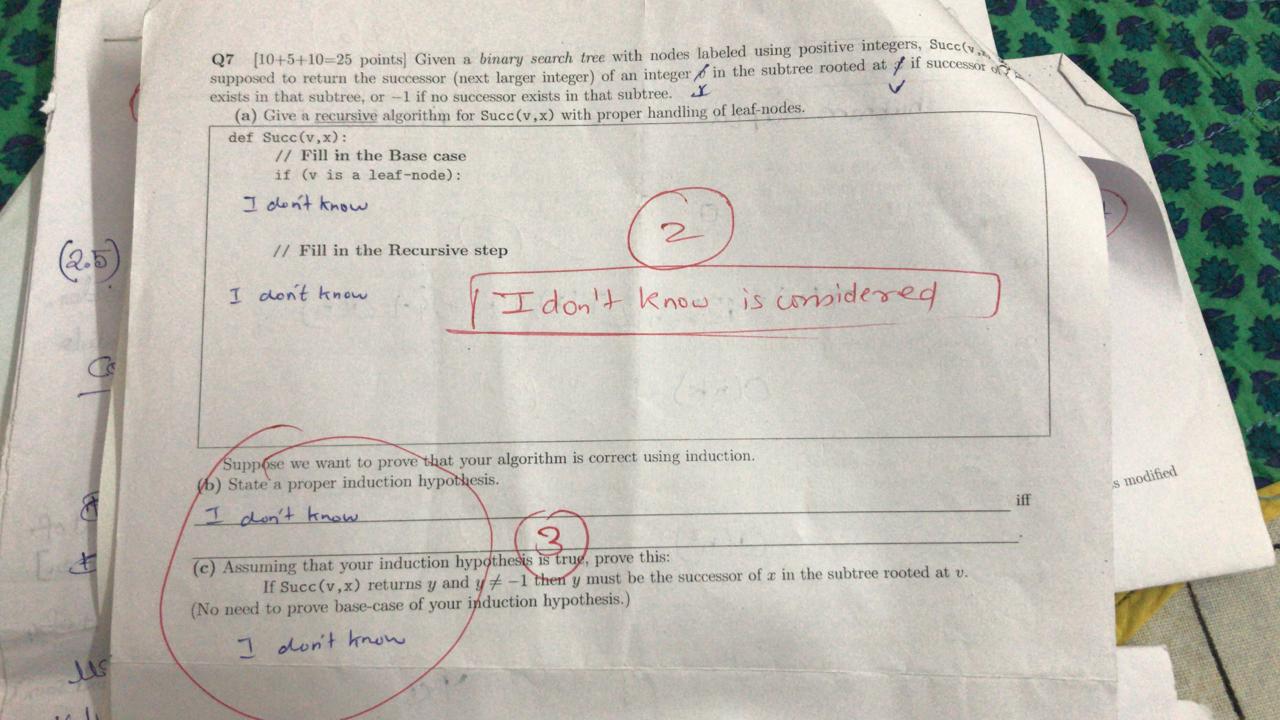 Q7 [10+5+10=25 points] Given a binary search tree with nodes labeled using positive integers, Succ(v,
supposed to return the successor (next larger integer) of an integer in the subtree rooted at if successor of
x v
exists in that subtree, or −1 if no successor exists in that subtree.
(a) Give a recursive algorithm for Succ(v,x) with proper handling of leaf-nodes.
def Succ(v,x):
// Fill in the Base case
if (v is a leaf-node):
I don't know
2
(2.5)
// Fill in the Recursive step
I don't know
I don't know is considered
Suppose we want to prove that your algorithm is correct using induction.
(b) State a proper induction hypothesis.
I don't know iff
s modified
3
(c) Assuming that your induction hypothesis is true, prove this:
If Succ(v,x) returns y and y ≠ −1 then y must be the successor of x in the subtree rooted at v.
(No need to prove base-case of your induction hypothesis.)
I don't know